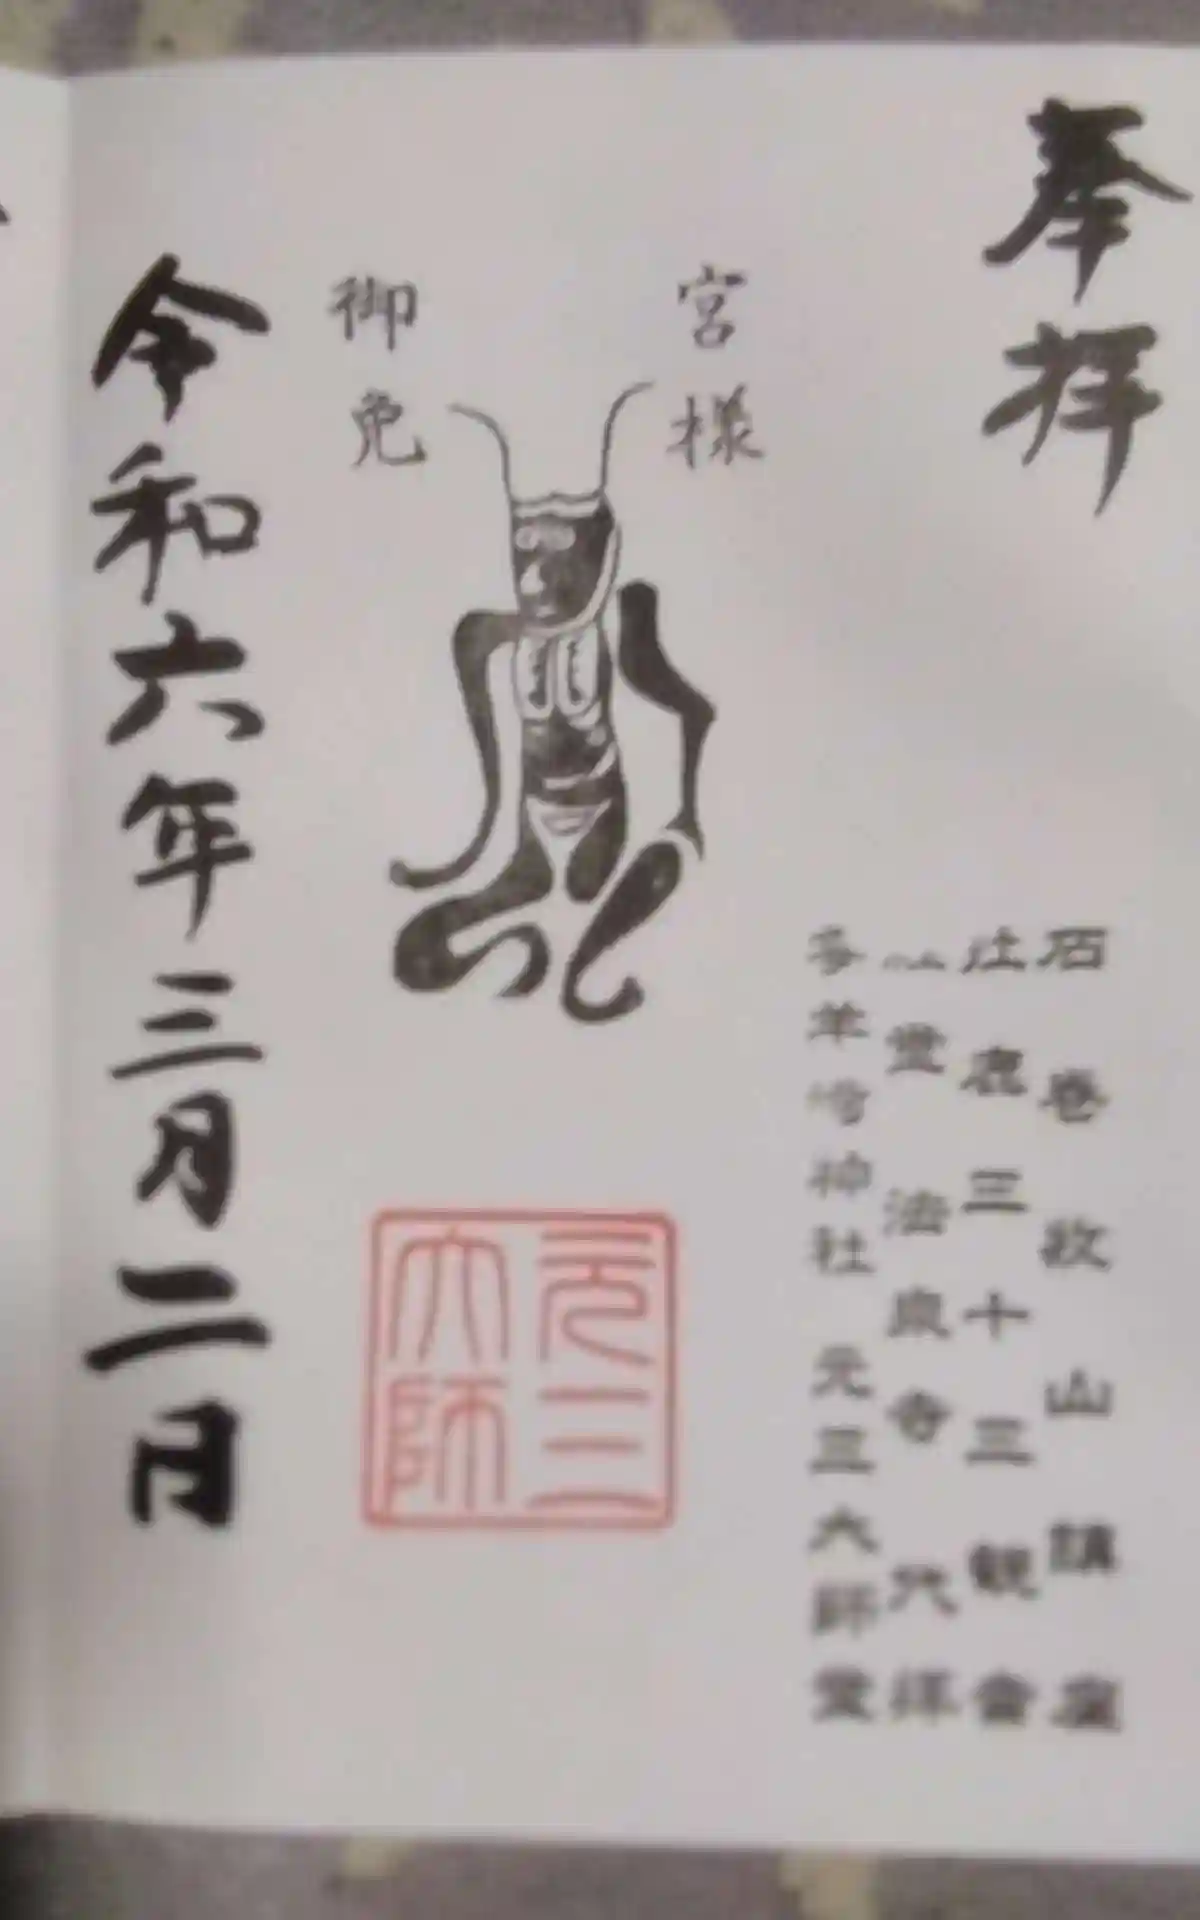 奉拝
宮様
御免
令和六年三月二日
元三
大師
石巻牧山講座
牡鹿三十三観会
法泉寺 代拝
神社 元三大師堂